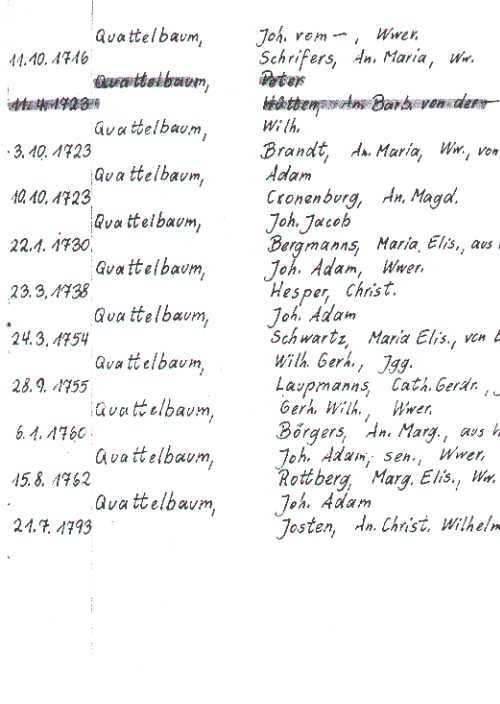 Quattelbaum, Joh. vom —, Wwer.
11.10.1716 Schrifers, An. Maria, Ww.
Quattelbaum, Peter
11.4.1723 An. Barb. von der —
Quattelbaum, Wilh.
3.10.1723 Brandt, An. Maria, Ww., von
Quattelbaum, Adam
10.10.1723 Cronenburg, An. Magd.
Quattelbaum, Joh. Jacob
22.1.1730 Bergmanns, Maria Elis., aus
Quattelbaum, Joh. Adam, Wwer.
23.3.1738 Hesper, Christ.
Quattelbaum, Joh. Adam
24.3.1754 Schwartz, Maria Elis., von
Quattelbaum, Wilh. Gerh., Jgg.
28.9.1755 Laupmanns, Cath. Gerdr.,
Quattelbaum, Gerh. Wilh., Wwer.
6.1.1760 Börgers, An. Marg., aus
Quattelbaum, Joh. Adam, sen., Wwer.
15.8.1762 Rottberg, Marg. Elis., Ww.
Quattelbaum, Joh. Adam
21.7.1793 Josten, An. Christ. Wilhelm